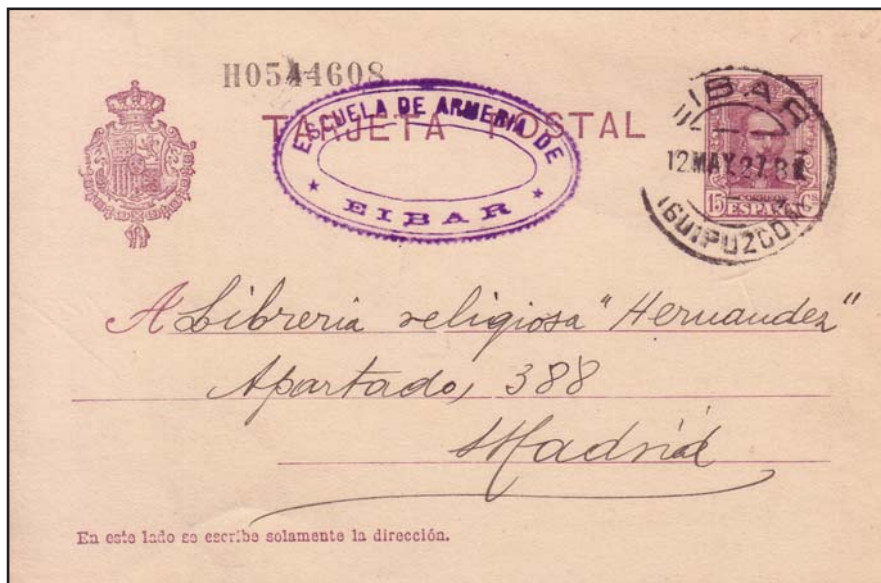 H0544608
TARJETA POSTAL
ESCUELA DE ARMERIA DE
EIBAR
EIBAR
12 MAY. 27. 8
(GUIPUZCOA)
15 ESPAÑA Cs
A Libreria religiosa "Hernandez"
Apartado, 388
Madrid
En este lado se escribe solamente la dirección.